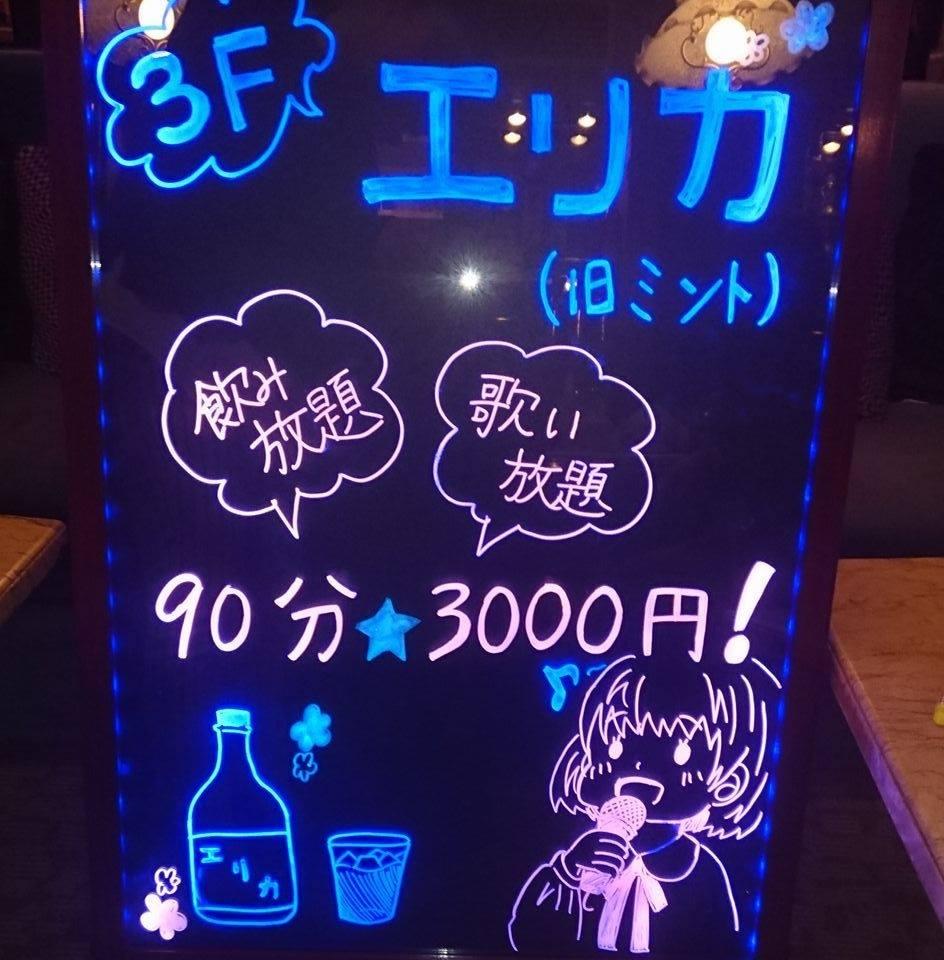 3F
エリカ
(旧ミント)
飲み
放題
歌い
放題
90分★3000円!
エリカ